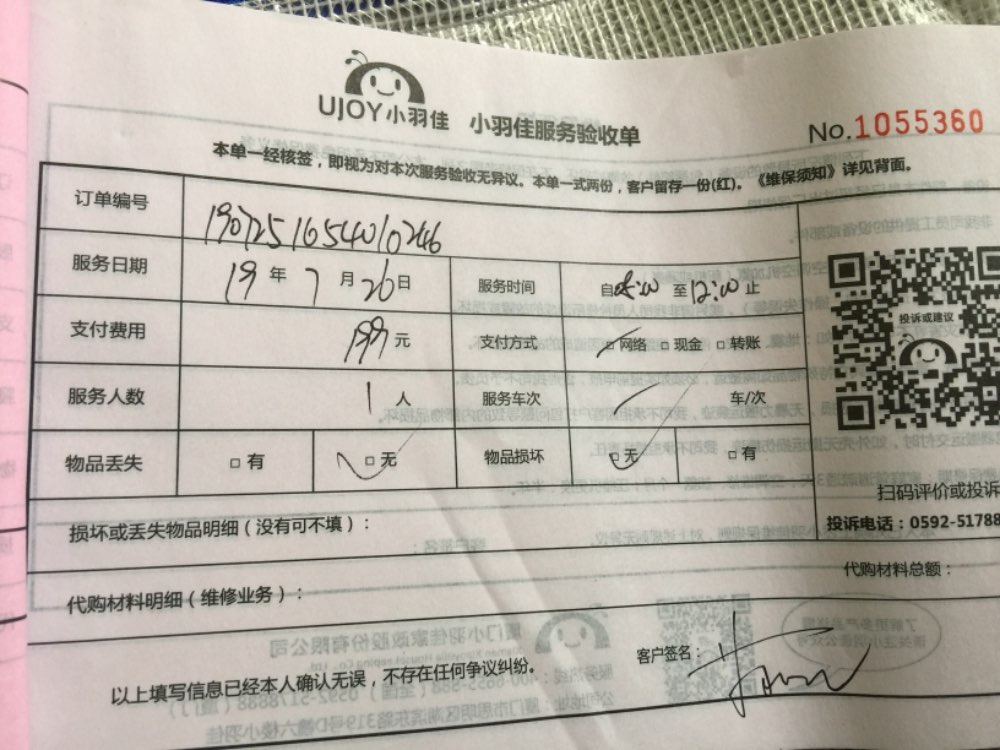 UJOY小羽佳 小羽佳服务验收单 No.1055360
本单一经核签，即视为对本次服务验收无异议。本单一式两份，客户留存一份(红)。《维保须知》详见背面。
订单编号 1907251654010246
服务日期 19年7月26日 服务时间 自8:00至12:00止
支付费用 199元 支付方式 □网络 □现金 □转账
服务人数 1人 服务车次 车/次
物品丢失 □有 □无 物品损坏 □无 □有
投诉或建议
扫码评价或投诉
投诉电话：0592-51788
损坏或丢失物品明细（没有可不填）：
代购材料明细（维修业务）： 代购材料总额：
以上填写信息已经本人确认无误，不存在任何争议纠纷。 客户签名：